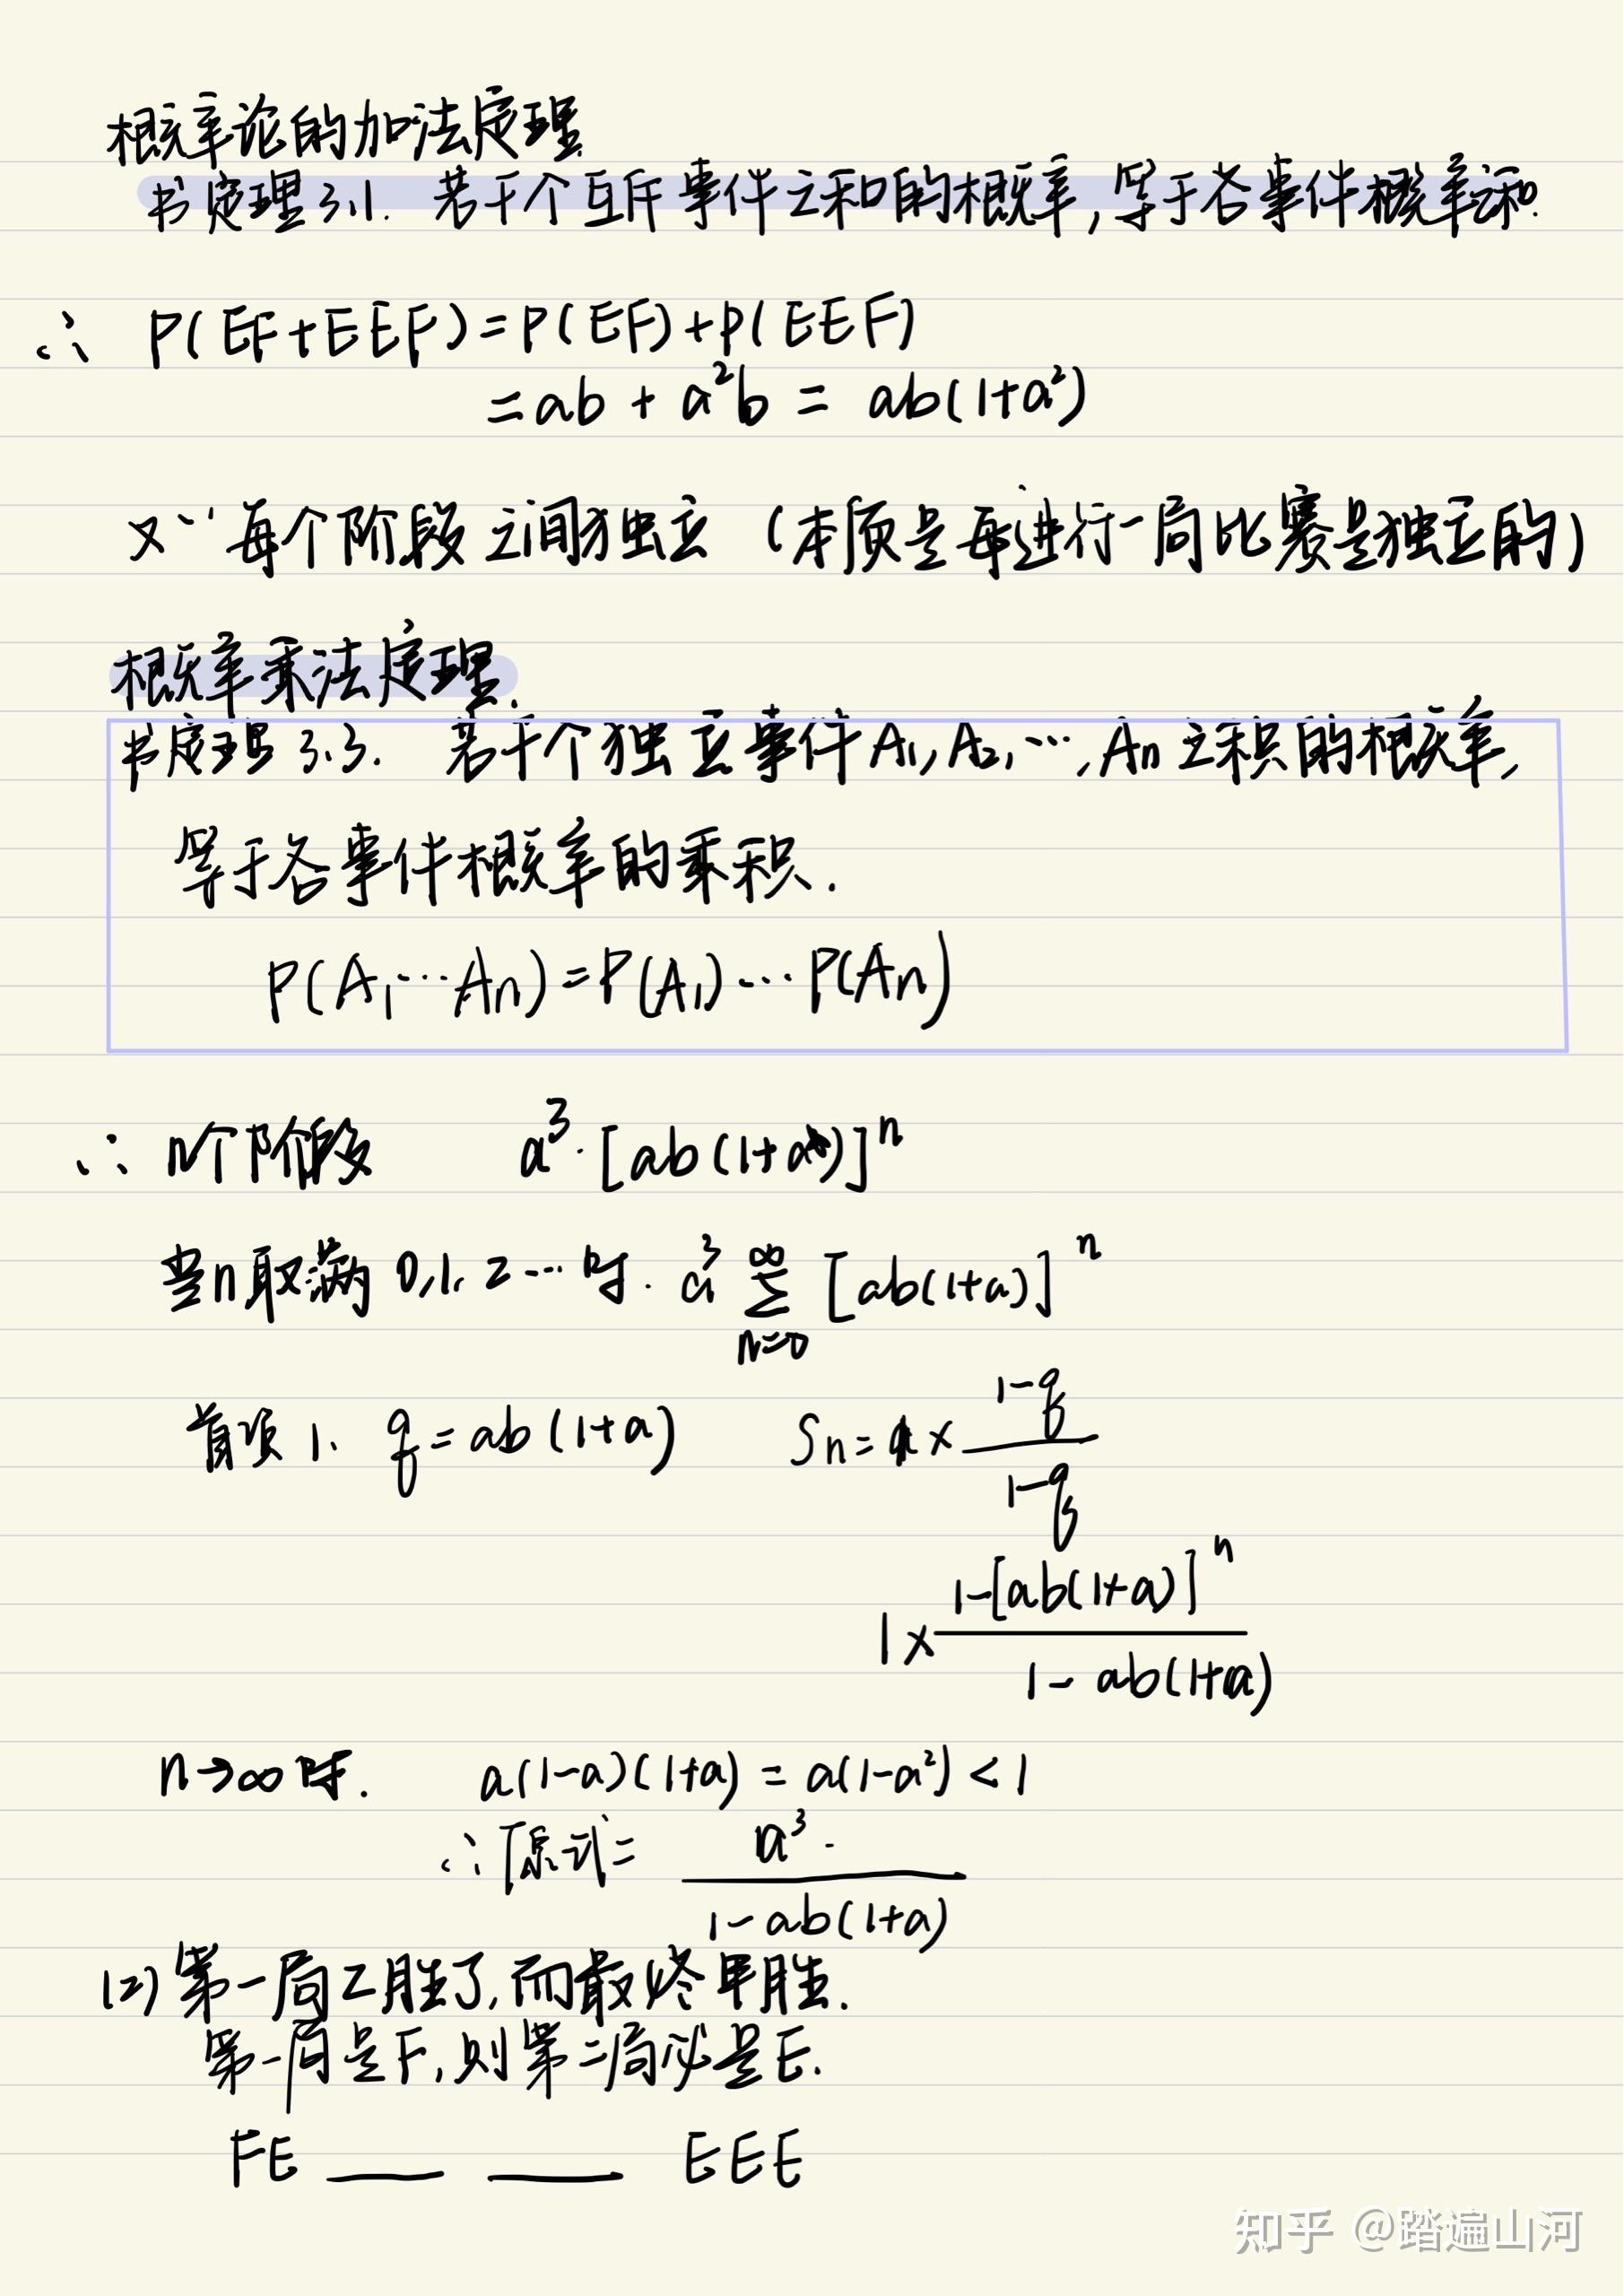 概率论的加法定理
书定理3.1. 若干个互斥事件之和的概率,等于各事件概率之和.
∴ P(EF+EEF)=P(EF)+P(EEF)
=ab + a²b = ab(1+a²)
又∵每个阶段之间独立 (本质是每进行一局比赛是独立的)
概率乘法定理.
书定理3.3. 若干个独立事件A₁,A₂,…,An之积的概率,
等于各事件概率的乘积.
P(A₁…An)=P(A₁)…P(An)
∴ n个阶段 a³·[ab(1+a)]ⁿ
当n取满0,1,2…时. a³ ∑_{n=0}^{∞} [ab(1+a)]ⁿ
首项1、 q=ab(1+a) Sn= × (1-q)/(1-q)
1× (1-[ab(1+a)]ⁿ)/(1-ab(1+a))
n→∞时. a(1-a)(1+a)=a(1-a²)<1
∴原式= a³·/(1-ab(1+a))
(2)第一局乙胜了,而最终甲胜.
第一局是F,则第二局必是E.
FE ___ ___ EEE
知乎 @踏遍山河